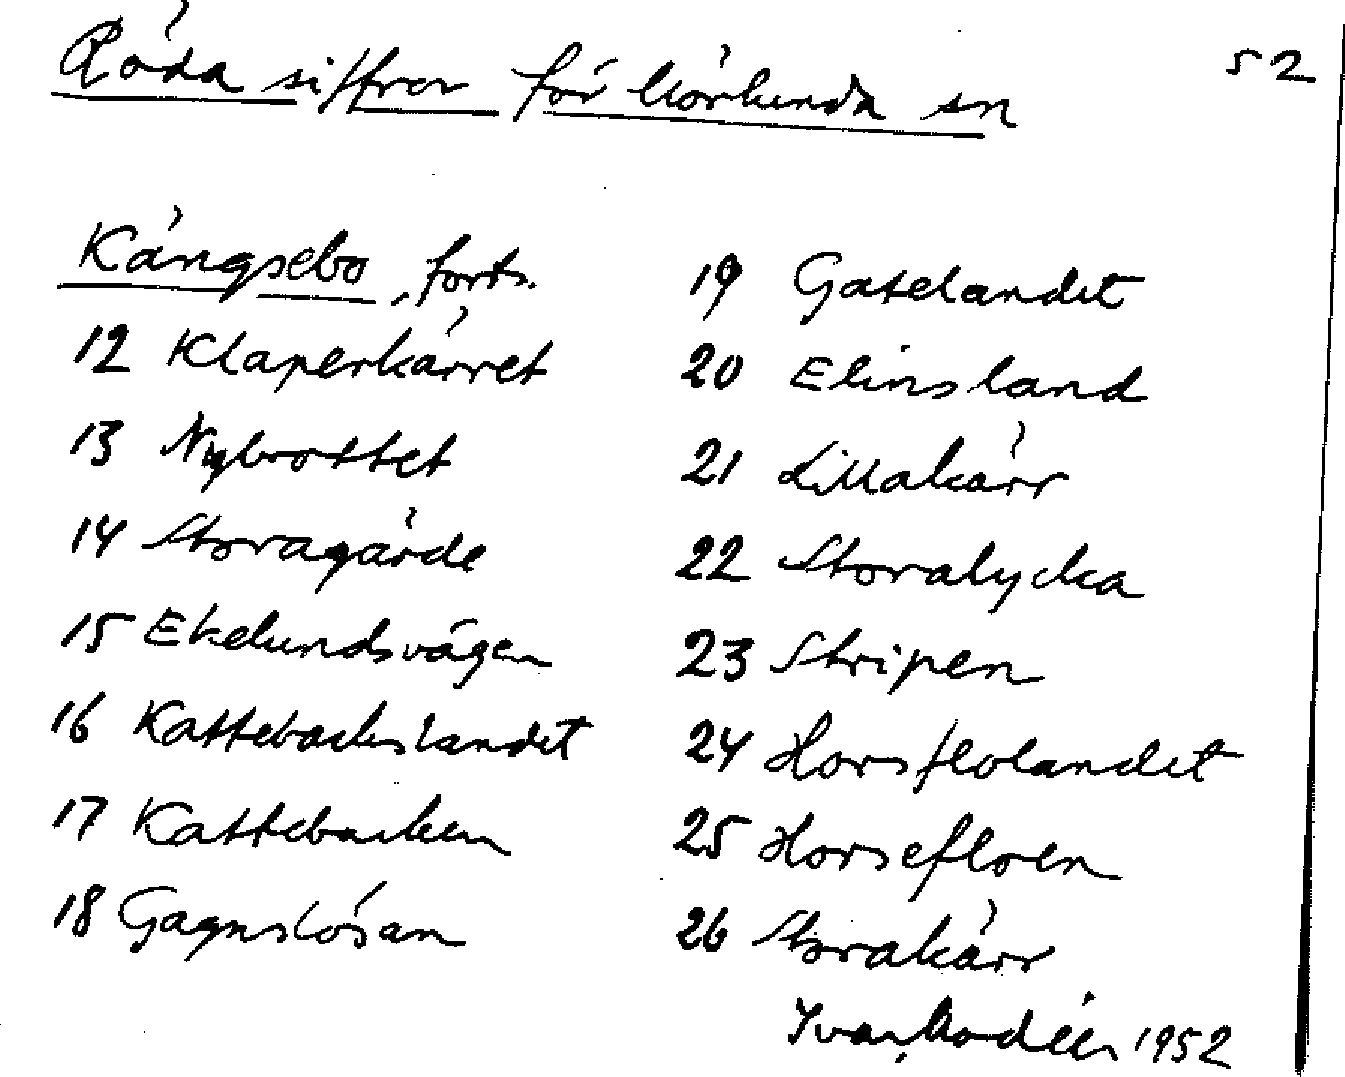 Röda siffror för Körlunda sn
52
Kängsebo, forts.
12 Klaperkärret
13 Nybrottet
14 Storagärde
15 Ekelundsvägen
16 Kattebackslandet
17 Kattebacken
18 Gagnslösan
19 Gatelandet
20 Elinsland
21 Lillakärr
22 Storalycka
23 Stripen
24 Horsflolandet
25 Horsefloen
26 Storakärr
Ivar Modéer 1952